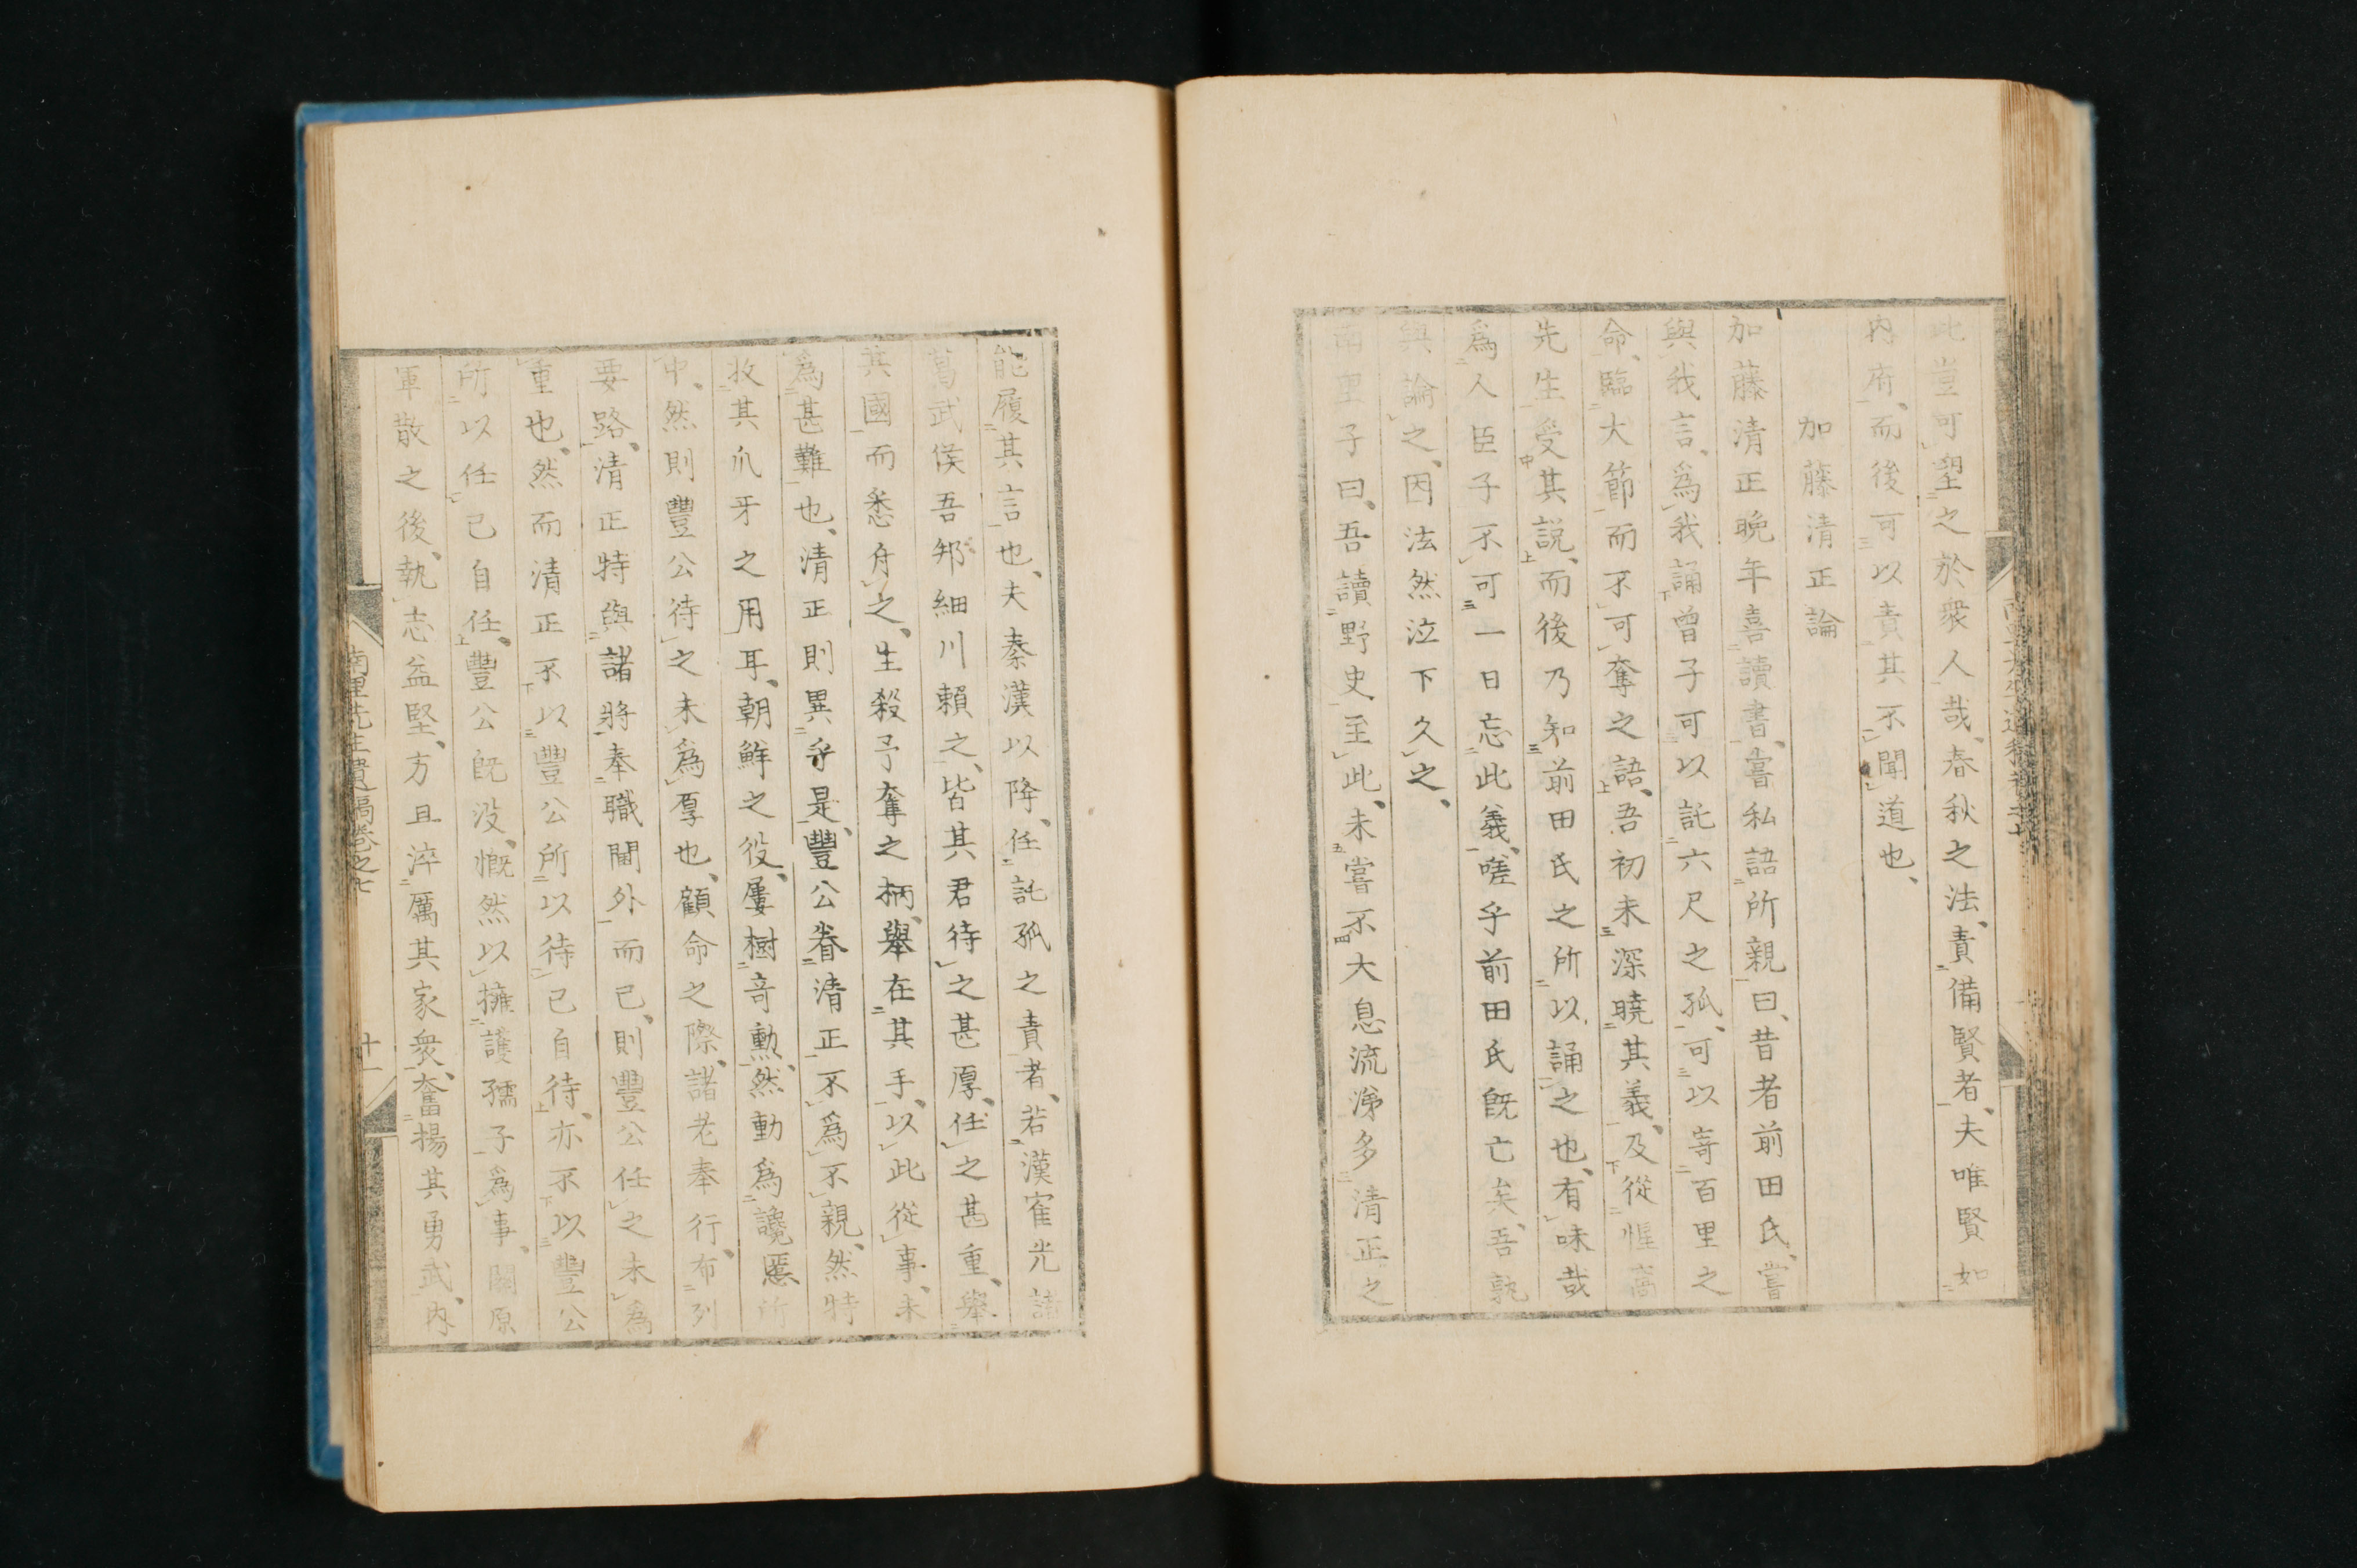 此豈可望之於衆人哉、春秋之法、責備賢者、夫唯賢如
内府、而後可以責其不聞道也、
加藤清正論
加藤清正晩年喜讀書、嘗私語所親曰、昔者前田氏、嘗
與我言、爲我誦曾子可以託六尺之孤、可以寄百里之
命、臨大節而不可奪之語、吾初未深曉其義、及從惺窩
先生受其説、而後乃知前田氏之所以誦之也、有味哉
爲人臣子不可一日忘此義、嗟乎前田氏既亡矣、吾孰
與論之、因泫然泣下久之、
南里子曰、吾讀野史、至此、未嘗不大息流涕多清正之
能履其言也、夫秦漢以降、任託孤之責者、若漢霍光諸
葛武侯吾邦細川賴之、皆其君待之甚厚、任之甚重、擧
其國而悉付之、生殺予奪之柄、擧在其手、以此從事、未
爲甚難也、清正則異乎是、豐公眷清正不爲不親、然特
收其爪牙之用耳、朝鮮之役、屢樹奇勲、然動爲讒慝所
中、然則豐公待之未爲厚也、顧命之際、諸老奉行、布列
要路、清正特與諸將奉職閫外而已、則豐公任之未爲
重也、然而清正不以豐公所以待己自待、亦不以豐公
所以任己自任、豐公既没、慨然以擁護孺子爲事、關原
軍散之後、執志益堅、方且淬厲其家衆、奮揚其勇武、内
南里先生遺稿卷之七
十一